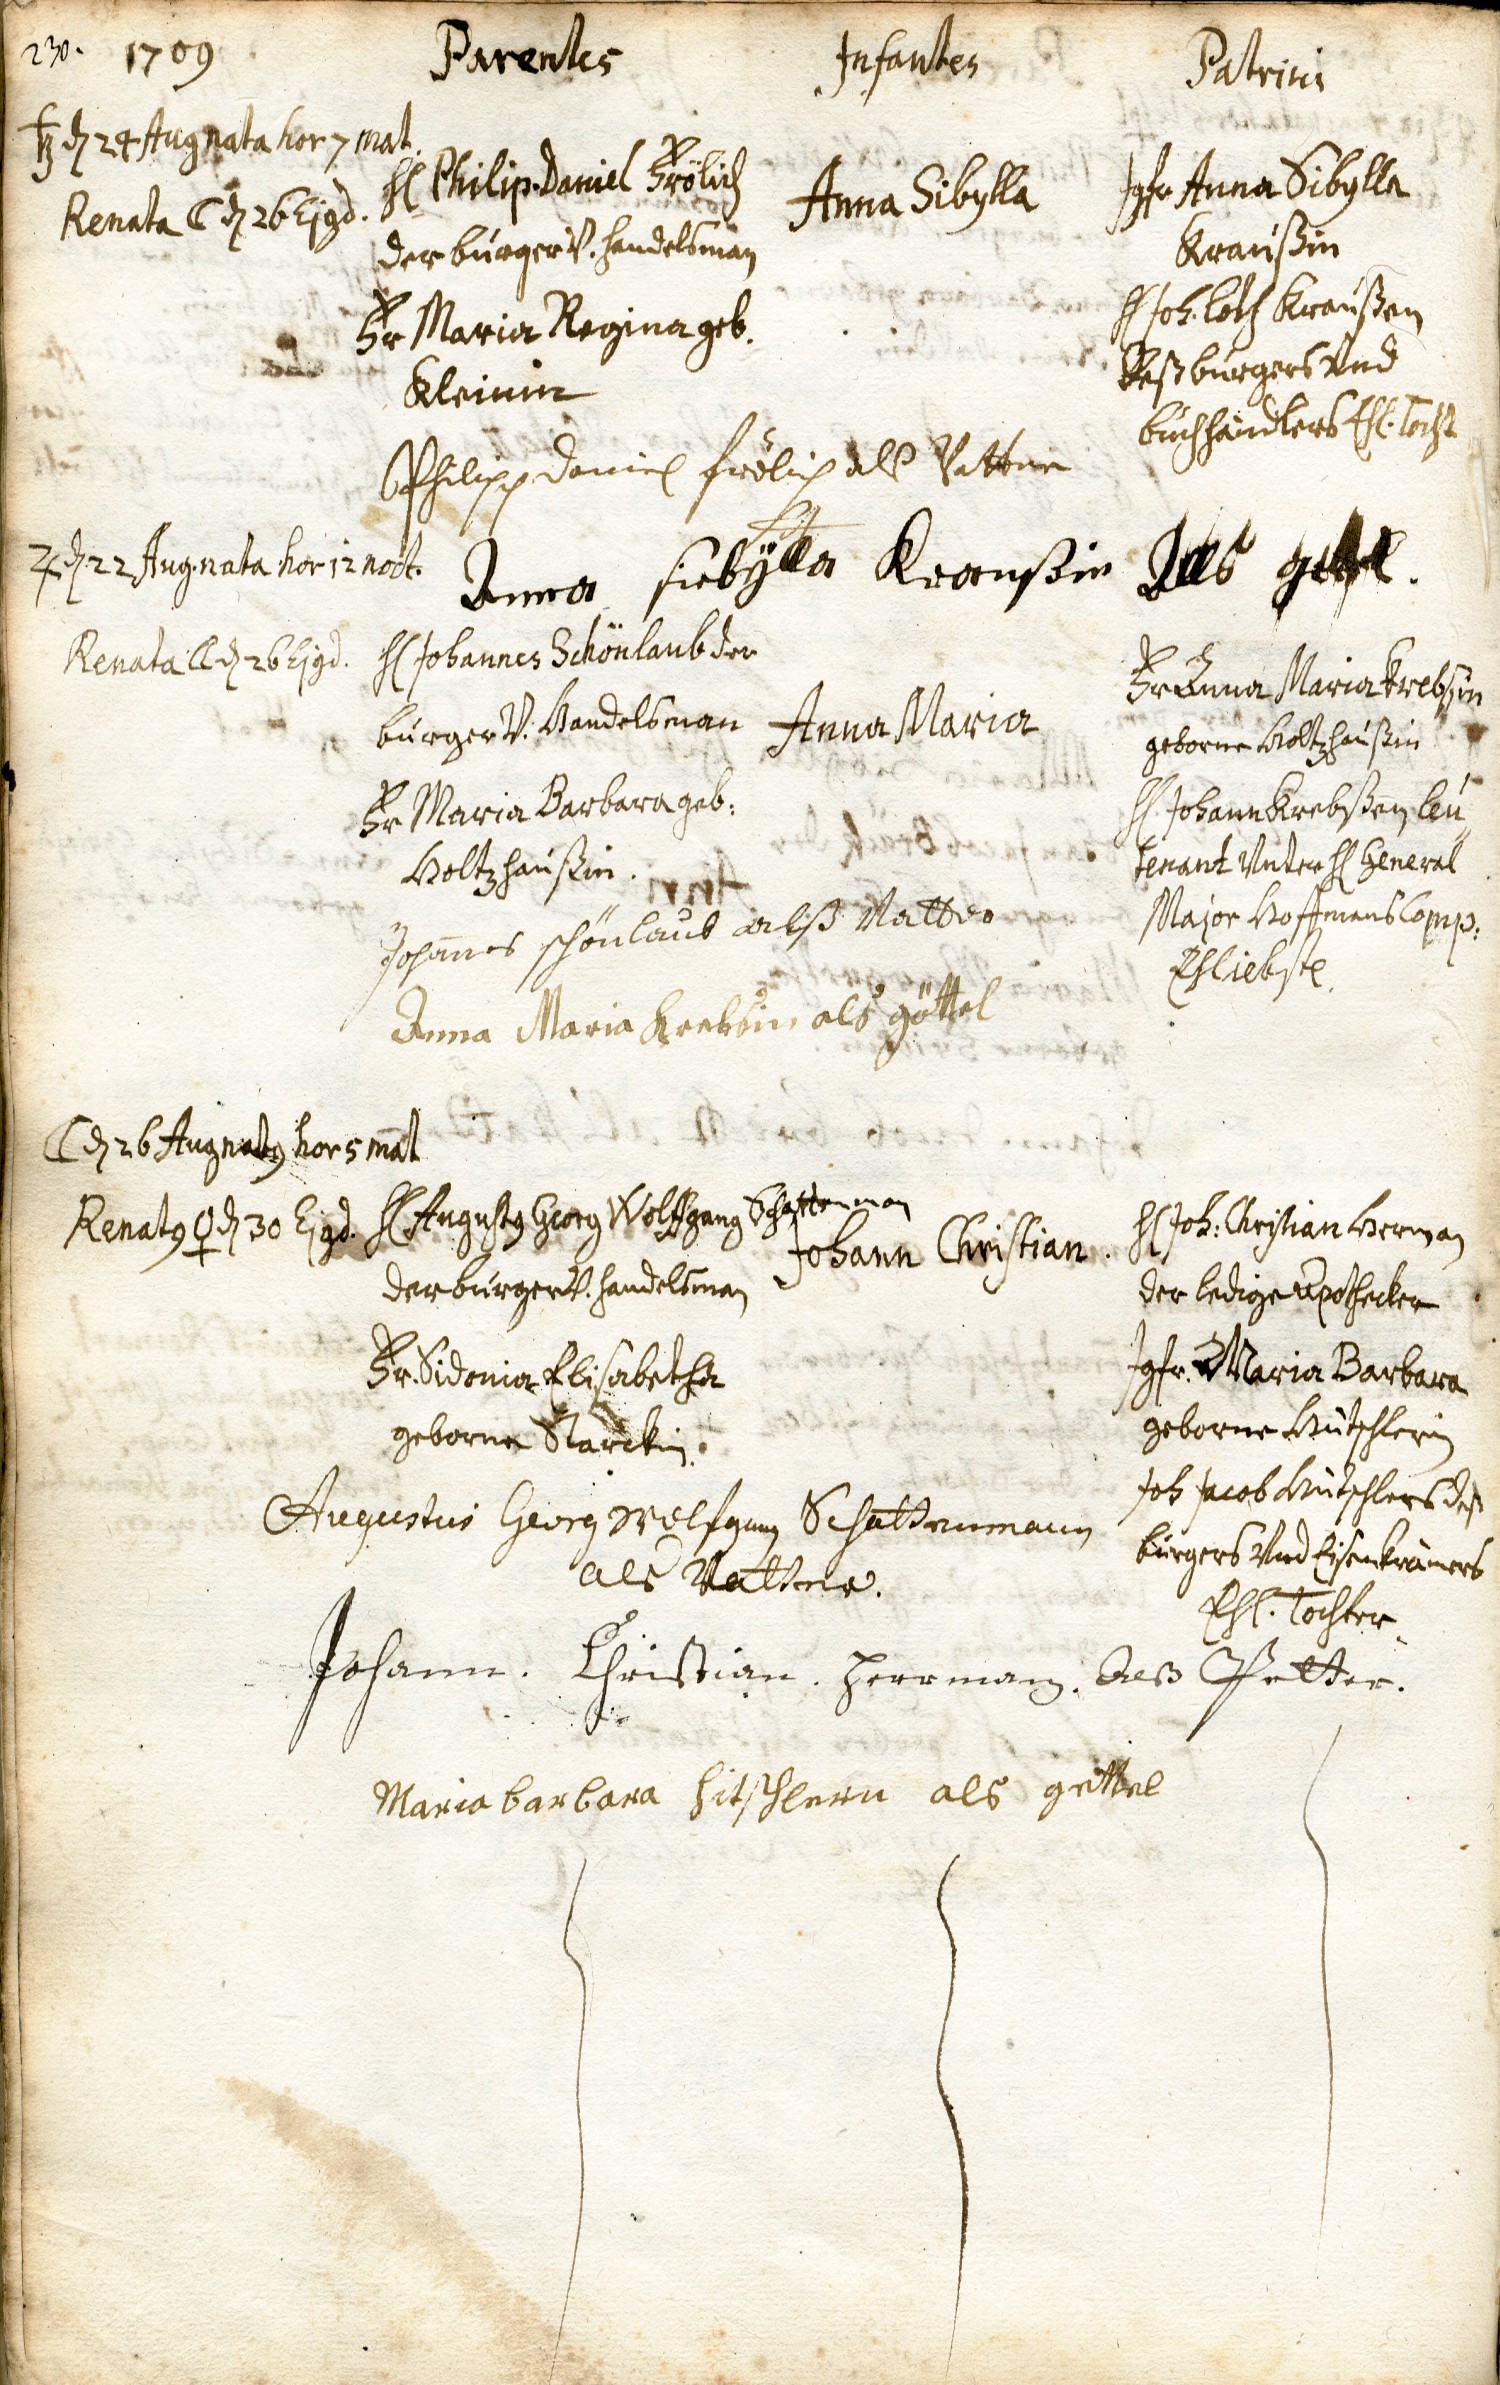 230. 1709 Parentes Infantes Patrini
♄ d 24 Aug nata hor 7 mat.
Renata ☾ d 26 Ejgd.
H Philip. Daniel Frölich
der burger V. handelsman
Fr Maria Regina geb.
Kleinin
Anna Sibylla
Jgfr Anna Sibylla
Kraußin
H Joh. Loth Kraußen
deß burgers Vnd
buchhändlers Ehl. Tocht
Philipp Daniel frölich als Vatter
Anna siebÿlla Kraußin Als getel.
♃ d 22 Aug. nata hor 12 noct.
Renata ☾ d 26 Ejgd.
H Johannes Schönlaub der
burger V. Handelsman
Fr Maria Barbara geb:
Holtzhaußin.
Anna Maria
Fr Anna Maria Krebsin
geborne Holtzhaußin
H Johann Krebßen leu
tenant Vnter H General
Major Hoffmans Comp:
Ehliebste
Johanes schönlaub alß Vatter
Anna Maria Krebsin als göttel
☾ d 26 Aug natq hor 5 mat
Renatq ♀ d 30 Ejgd.
H Augustq Georg Wolffgang Schattenman
der burger V. handelsman
Fr. Sidonia Elisabetha
geborne Starckin.
Johann Christian.
H Joh: Christian Herman
der ledige Apothecker
Jgfr. Maria Barbara
geborne Hütschlerin
Joh Jacob Hütschlers deß
burgers Vnd Eisenkrämers
Ehl. Tochter
Augustus Georg Wolfgang Schattenmann
als Vatter.
Johann. Christian. Herrman. deß Petter.
Maria barbara hitschlern als gettel